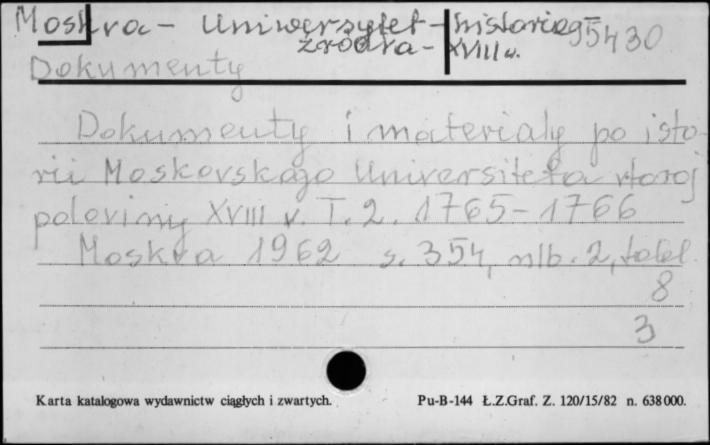 Moskva - Uniwersytet - historia - 95430
źródła - XVIII w.
Dokumenty
Dokumenty i materialy po isto-
rii Moskovskago Universiteta vtoroj
poloviny XVIII v. T. 2. 1765-1766
Moskva 1962 s. 354, nlb. 2, tabl.
8
3
Karta katalogowa wydawnictw ciągłych i zwartych. Pu-B-144 Ł.Z.Graf. Z. 120/15/82 n. 638000.